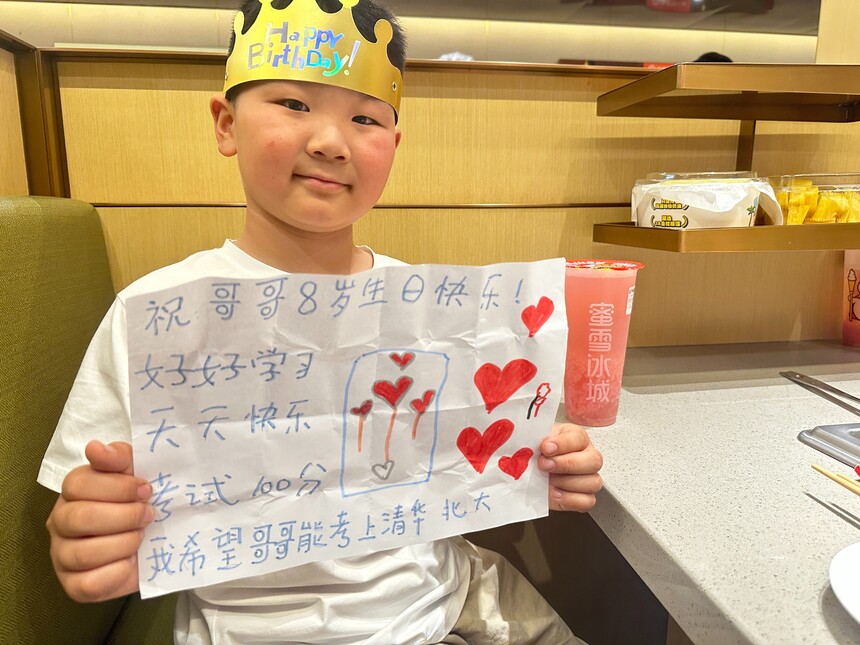 Happy
BirthDay!
祝哥哥8岁生日快乐!
好好学习
天天快乐
考试100分
我希望哥哥能考上清华北大
蜜雪冰城